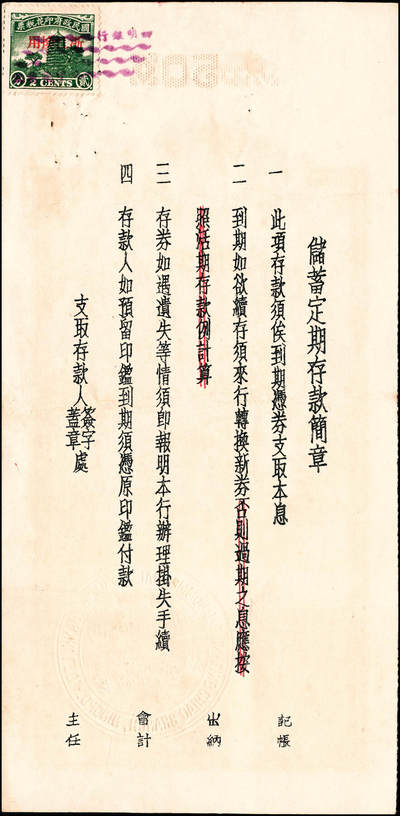 國民政府印花稅票
2 CENTS
貳
儲蓄定期存款簡章
一 此項存款須俟到期憑券支取本息
二 到期如欲續存須來行轉換新券否則過期之息應按
照活期存款例計算
三 存券如遇遺失等情須卽報明本行辦理掛失手續
四 存款人如預留印鑑到期須憑原印鑑付款
支取存款人簽字蓋章處
記帳
出納
會計
主任